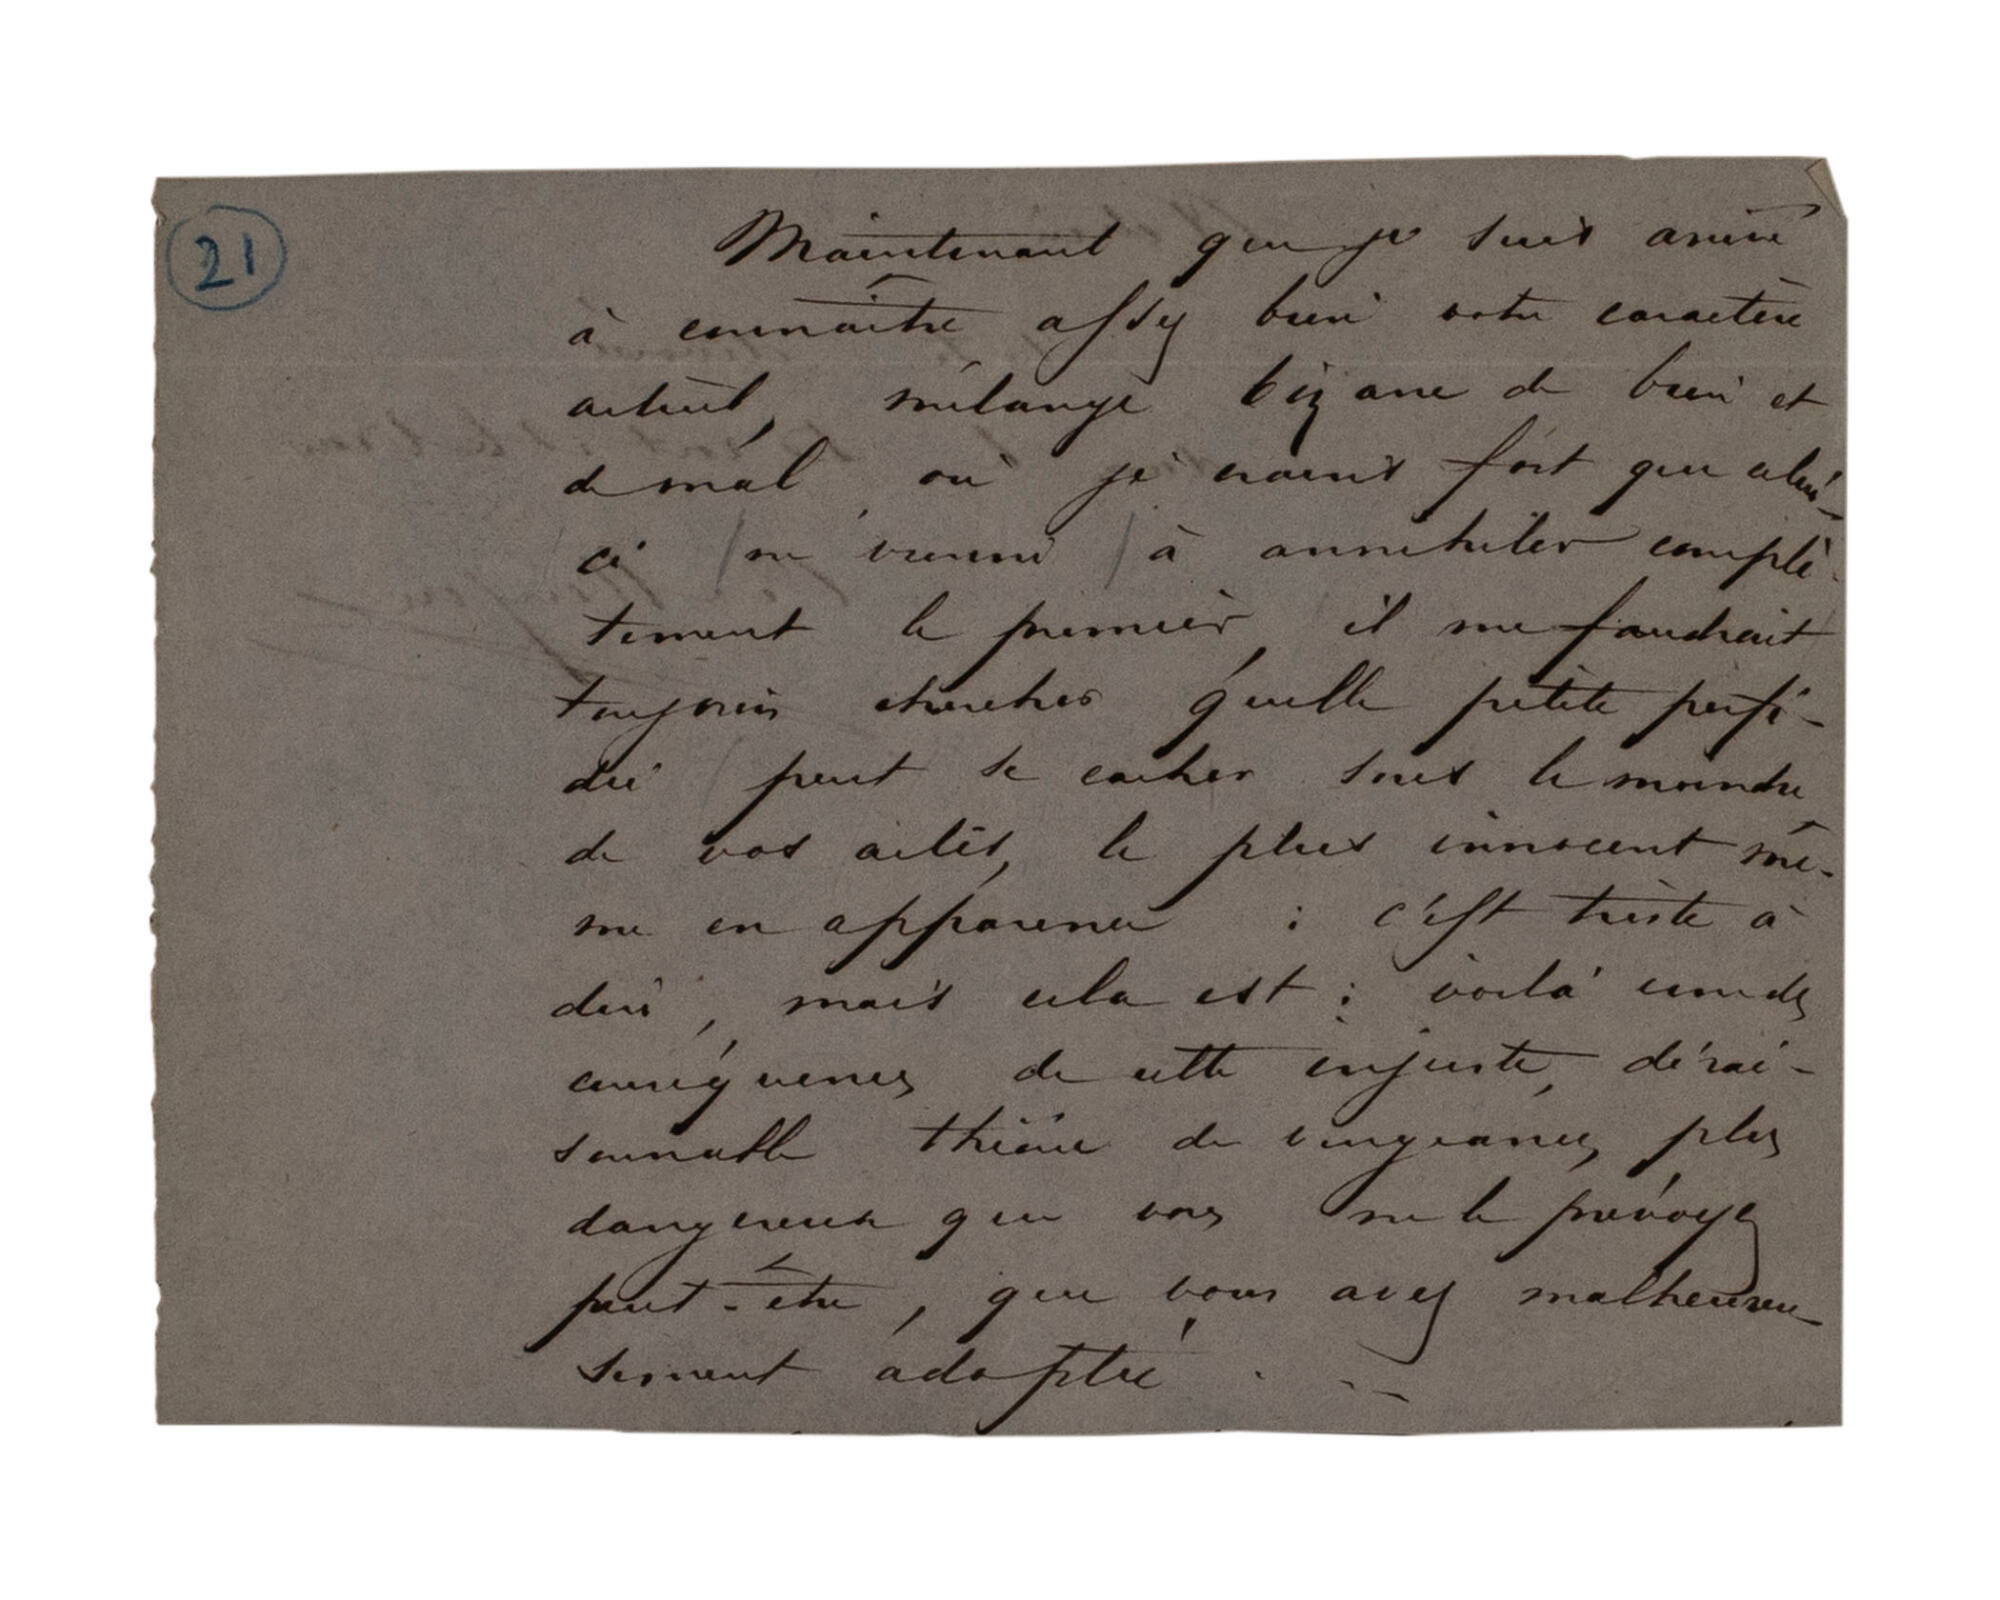 21
Maintenant que je suis arrivé
à connaître assez bien votre caractère
actuel, mélange bizarre de bien et
de mal, où je crains fort que celui-
ci ne vienne à annihiler complè-
tement le premier, il me faudrait
toujours chercher quelle petite perfi-
die peut se cacher sous le moindre
de vos actes, le plus innocent mê-
me en apparence : c'est triste à
dire, mais cela est : voilà une des
conséquences de cette injuste, dérai-
sonnable théorie de vengeances, plus
dangereuse que vous ne le prévoyez
peut-être, que vous avez malheureu-
sement adoptée . . .